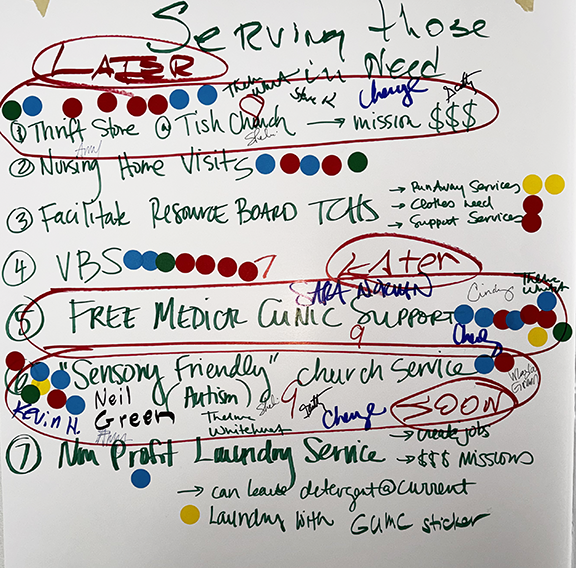 Serving those
in Need
LATER
Change
① Thrift Store @ Tish Church → mission $$$
② Nursing Home Visits
③ Facilitate RESOURCE BOARD TCHS
→ RunAway Services
→ Clothes need
→ Support Services
④ VBS 7
LATER
SARA NORMAN
Cindy
Thelma Whitehurst
⑤ FREE MEDICAL CLINIC SUPPORT
9
⑥ "Sensory Friendly" church Service
(Autism)
Kevin H. Neil Green
Thelma Whitehurst
9
Change
SOON
⑦ Non Profit Laundry Service
→ create jobs
→ $$$ MISSIONS
→ can leave detergent @ current
Laundry with GUMC sticker